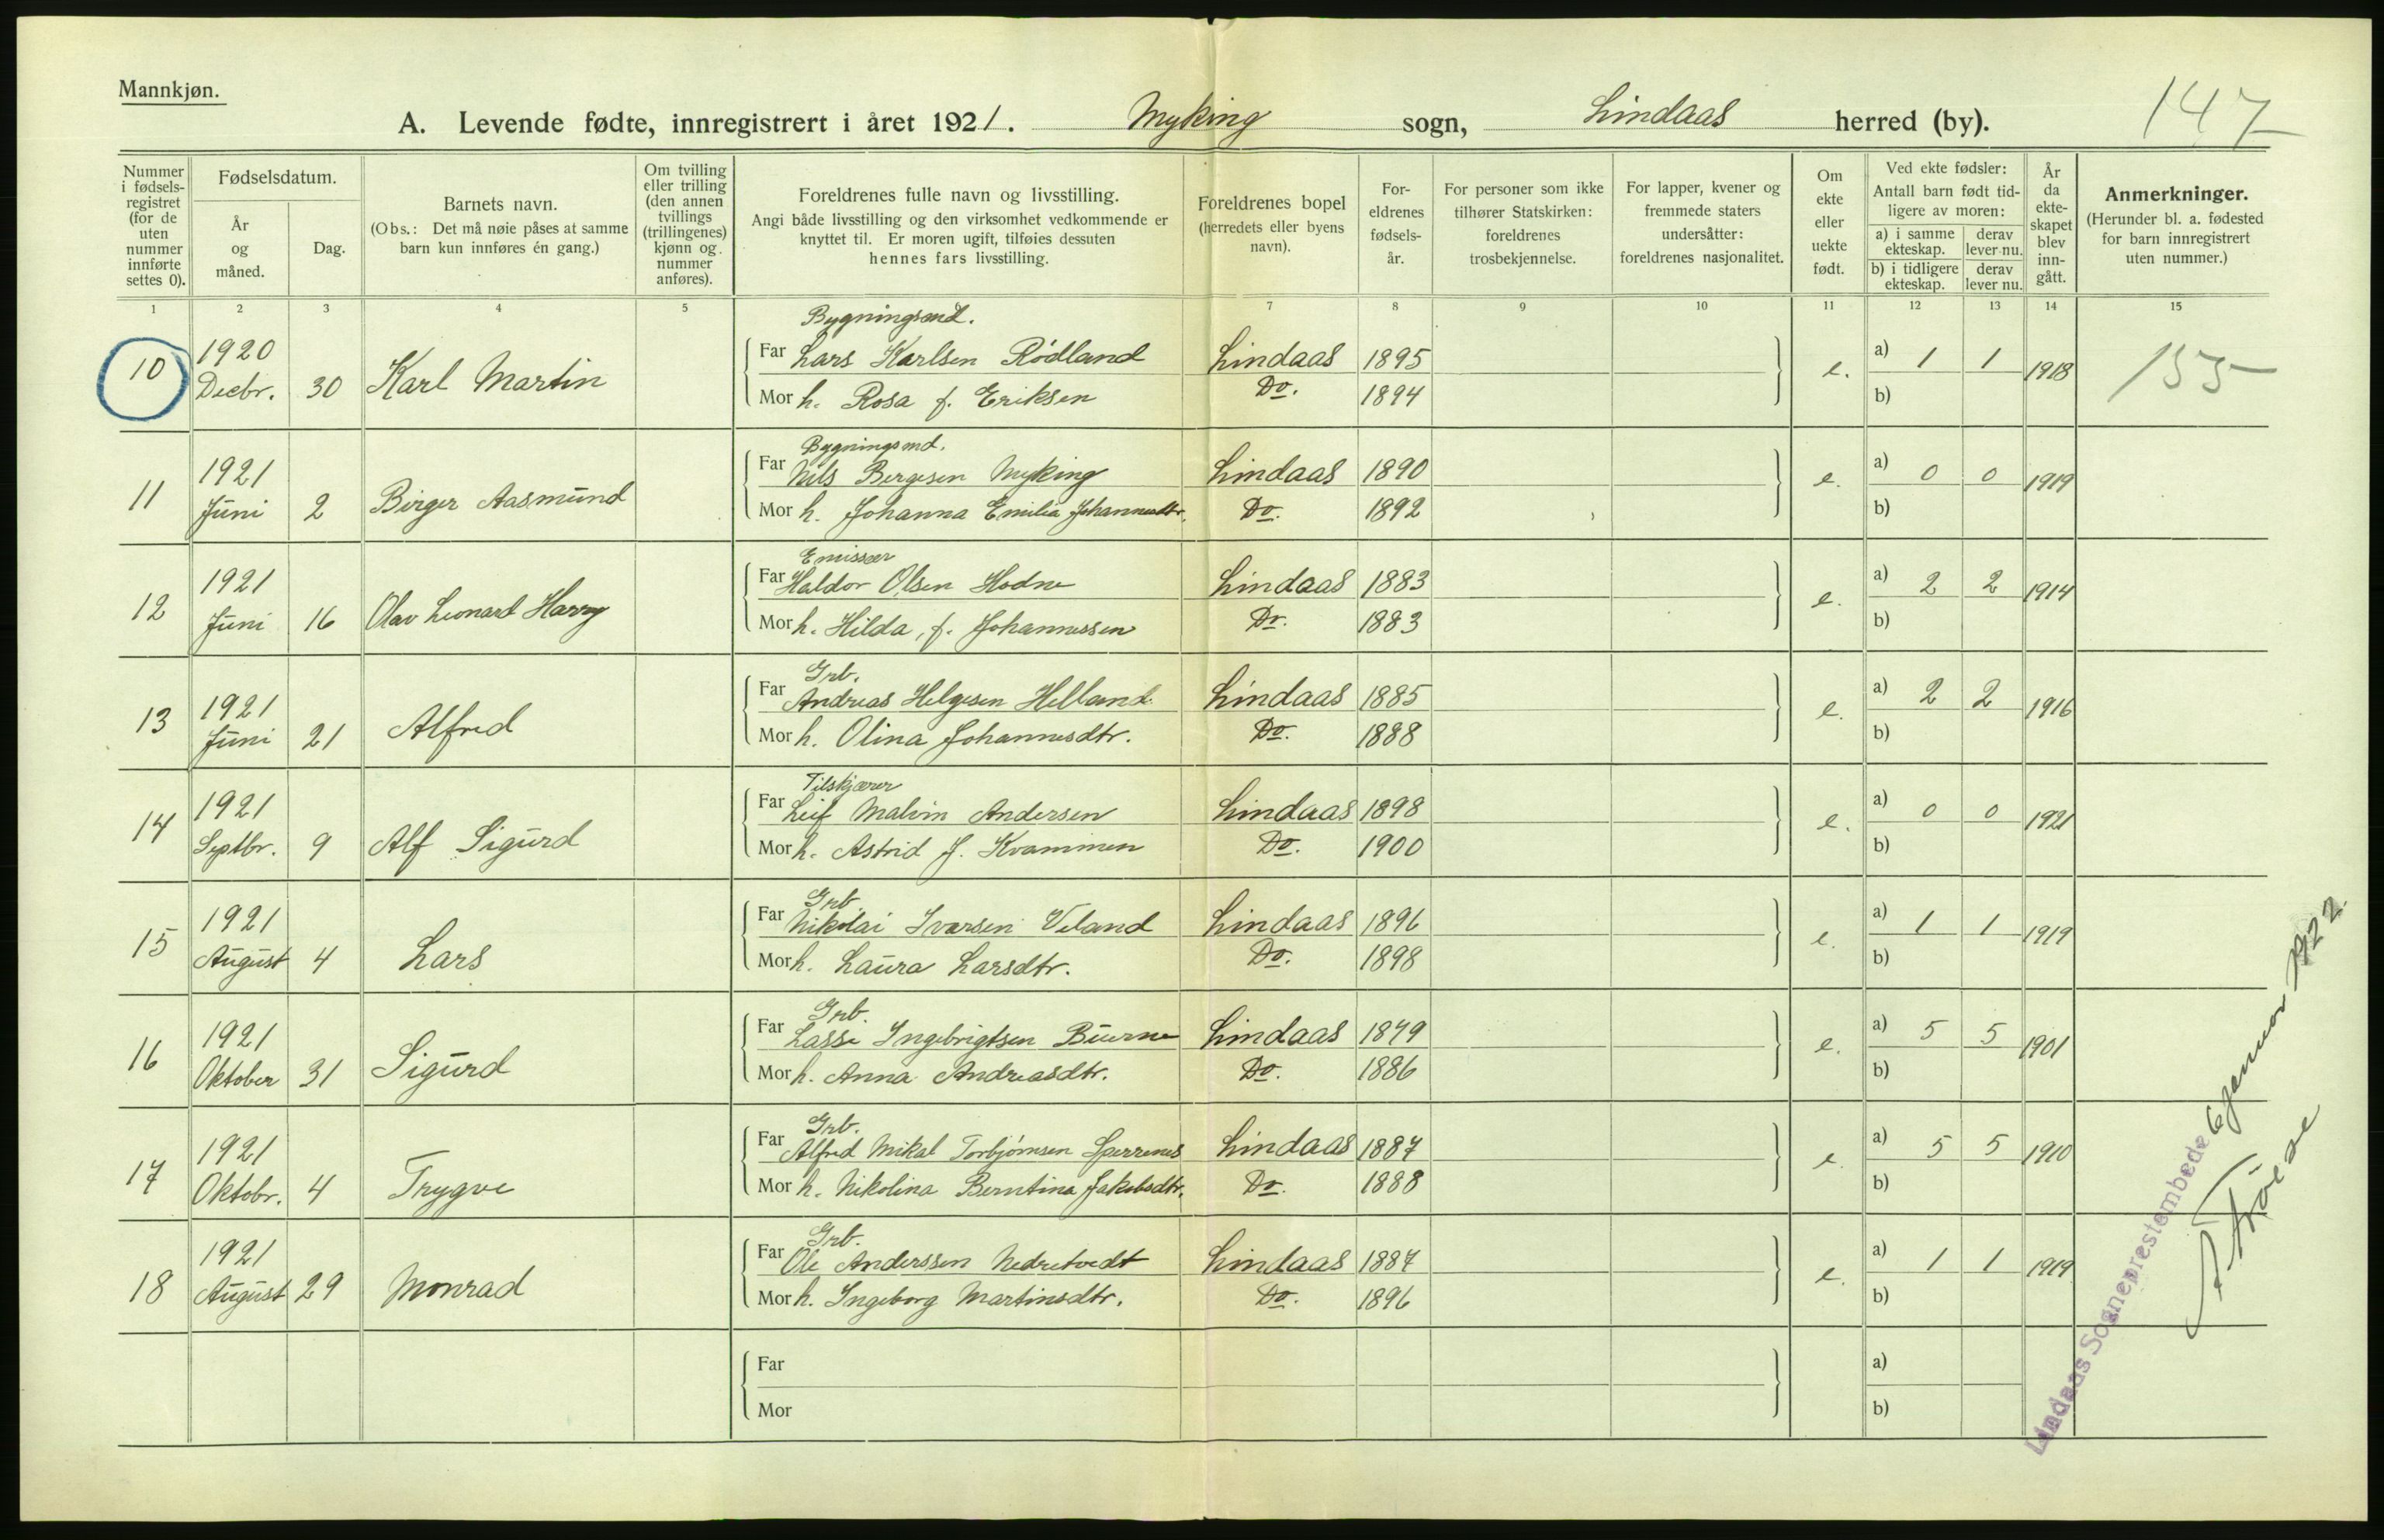 Mannkjøn.
147
A. Levende fødte, innregistrert i året 1921. Myking sogn, Lindaas herred (by).
Nummer i fødselsregistret (for de uten nummer innførte settes 0).
Fødselsdatum.
År og måned.
Dag.
Barnets navn.
(Obs.: Det må nøie påses at samme barn kun innføres én gang.)
Om tvilling eller trilling (den annen tvillings (trillingenes) kjønn og nummer anføres).
Foreldrenes fulle navn og livsstilling.
Angi både livsstilling og den virksomhet vedkommende er knyttet til. Er moren ugift, tilføies dessuten hennes fars livsstilling.
Foreldrenes bopel (herredets eller byens navn).
Foreldrenes fødselsår.
For personer som ikke tilhører Statskirken: foreldrenes trosbekjennelse.
For lapper, kvener og fremmede staters undersåtter: foreldrenes nasjonalitet.
Om ekte eller uekte født.
Ved ekte fødsler:
Antall barn født tidligere av moren:
a) i samme ekteskap. derav lever nu.
b) i tidligere ekteskap. derav lever nu.
År da ekteskapet blev inngått.
Anmerkninger.
(Herunder bl. a. fødested for barn innregistrert uten nummer.)
1 2 3 4 5 7 8 9 10 11 12 13 14 15
Bygningsmd.
10 1920 Decbr. 30 Karl Martin Far Lars Karlsen Rödland Lindaas 1895 e. a) 1 1 1918 155
Mor h. Rosa f. Eriksen Do. 1894 b)
Bygningsmd.
11 1921 Juni 2 Birger Aasmund Far Nils Bergesen Myking Lindaas 1890 e. a) 0 0 1919
Mor h. Johanna Emilia Johannesdtr. Do. 1892 b)
Emissær
12 1921 Juni 16 Olav Leonard Harry Far Haldor Olsen Hodne Lindaas 1883 e. a) 2 2 1914
Mor h. Hilda, f. Johannessen Do. 1883 b)
Grb.
13 1921 Juni 21 Alfred Far Andreas Helgesen Helland Lindaas 1885 e. a) 2 2 1916
Mor h. Olina Johannesdtr. Do. 1888 b)
Tilskjærer
14 1921 Septbr. 9 Alf Sigurd Far Leif Malvin Andersen Lindaas 1898 e. a) 0 0 1921
Mor h. Astrid f. Kvammen Do. 1900 b)
Grb.
15 1921 August 4 Lars Far Nikolai Iversen Veland Lindaas 1896 e. a) 1 1 1919
Mor h. Laura Larsdtr. Do. 1898 b)
Grb.
16 1921 Oktober 31 Sigurd Far Lasse Ingebrigtsen Lindaas 1879 e. a) 5 5 1901
Mor h. Anna Andreasdtr. Do. 1886 b)
Grb.
17 1921 Oktobr. 4 Trygve Far Alfred Mikal Torbjörnsen Lindaas 1887 e. a) 5 5 1910
Mor h. Nikolina Berntina Jakobsdtr. Do. 1888 b)
Grb.
18 1921 August 29 Monrad Far Ole Anderssen Nedretvedt Lindaas 1887 e. a) 1 1 1919
Mor h. Ingeborg Martinsdtr. Do. 1896 b)
Far a)
Mor b)
Lindaas Sogneprestembede 6 januar 1922.